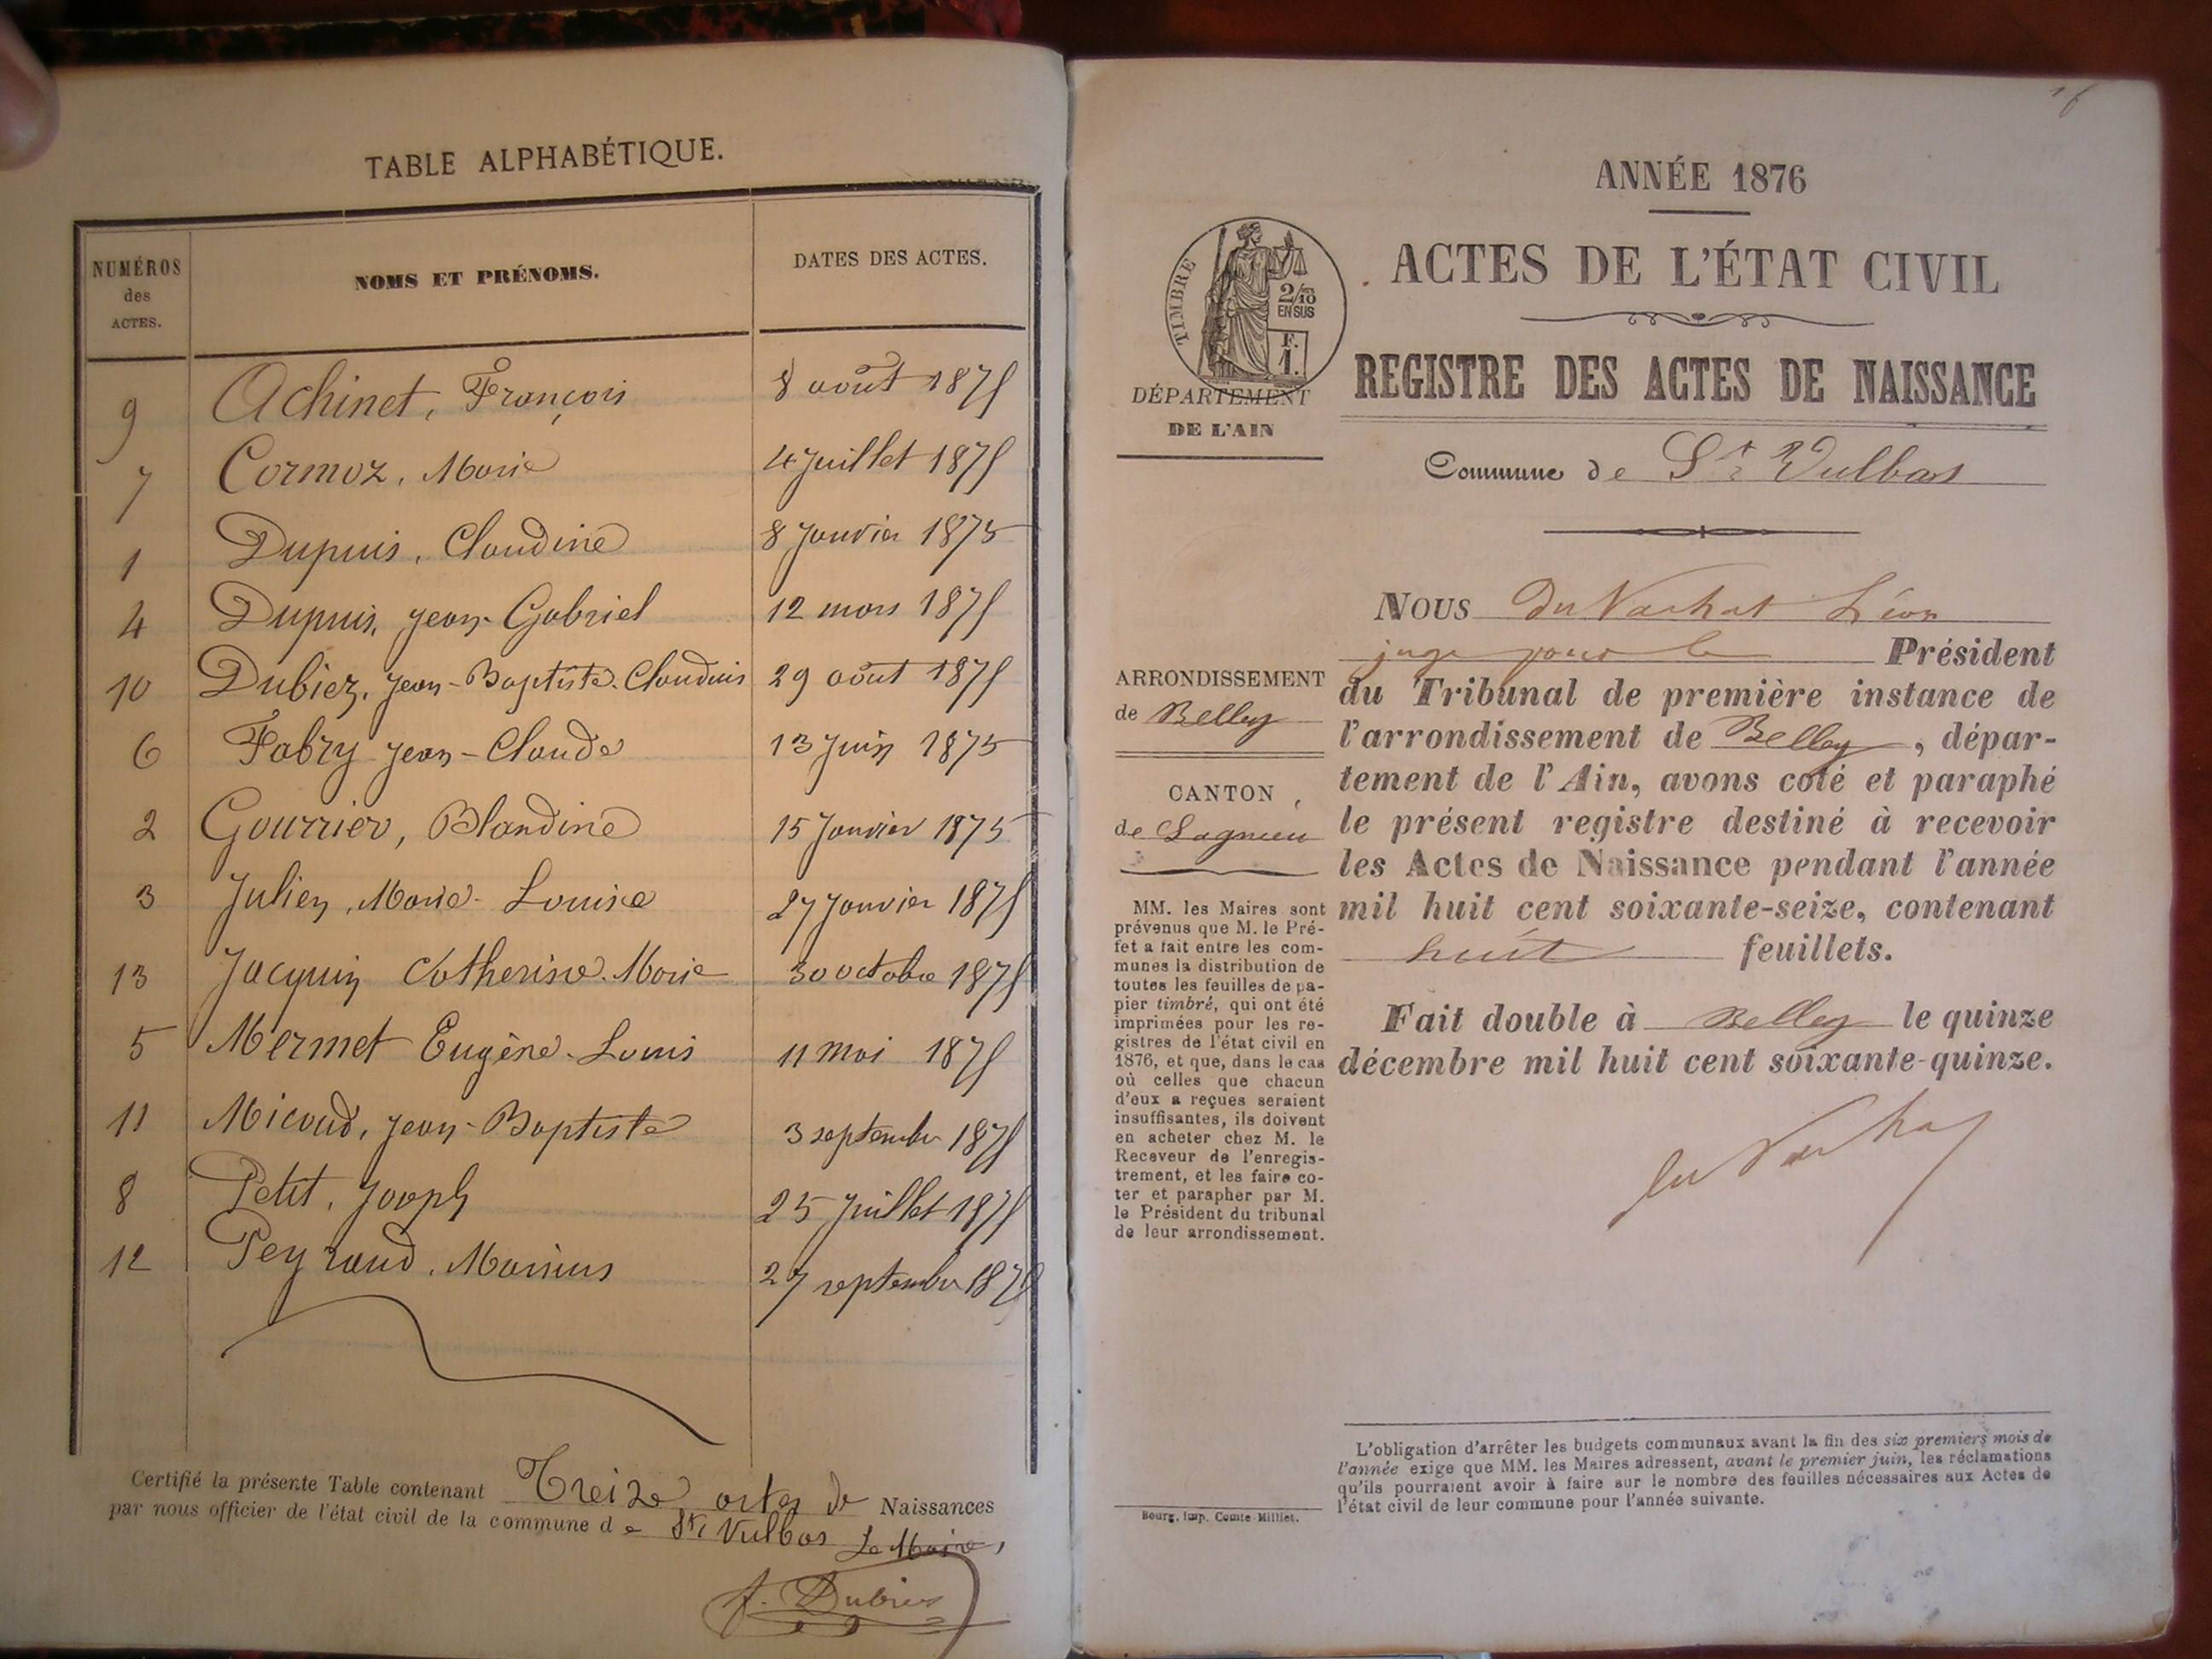 TABLE ALPHABÉTIQUE.
NUMÉROS des ACTES.
NOMS ET PRÉNOMS.
DATES DES ACTES.
9 Achinet, François 8 août 1875
7 Cormoz, Marie 4 Juillet 1875
1 Dupuis, Claudine 8 Janvier 1875
4 Dupuis, Jean-Gabriel 12 mars 1875
10 Dubiez, Jean-Baptiste-Claudius 29 août 1875
6 Fabry Jean-Claude 13 Juin 1875
2 Gourrier, Blandine 15 Janvier 1875
3 Julien, Marie-Louise 27 Janvier 1875
13 Jacquin Catherine-Marie 30 octobre 1875
5 Mermet Eugène-Louis 11 mai 1875
11 Micoud, Jean-Baptiste 3 septembre 1875
8 Petit, Joseph 25 Juillet 1875
12 Peyraud, Marius 27 septembre 1875
Certifié la présente Table contenant Treize actes de Naissances
par nous officier de l'état civil de la commune de St Vulbas Le Maire,
f. Dubiez
ANNÉE 1876
TIMBRE
2/10
EN SUS
F.
1.
ACTES DE L'ÉTAT CIVIL
DÉPARTEMENT
DE L'AIN
REGISTRE DES ACTES DE NAISSANCE
Commune de St Vulbas
ARRONDISSEMENT
de Belley
CANTON
de Lagnieu
MM. les Maires sont
prévenus que M. le Pré-
fet a fait entre les com-
munes la distribution de
toutes les feuilles de pa-
pier timbré, qui ont été
imprimées pour les re-
gistres de l'état civil en
1876, et que, dans le cas
où celles que chacun
d'eux a reçues seraient
insuffisantes, ils doivent
en acheter chez M. le
Receveur de l'enregis-
trement, et les faire co-
ter et parapher par M.
le Président du tribunal
de leur arrondissement.
NOUS du Vachat Léon
juge pour le Président
du Tribunal de première instance de
l'arrondissement de Belley, dépar-
tement de l'Ain, avons coté et paraphé
le présent registre destiné à recevoir
les Actes de Naissance pendant l'année
mil huit cent soixante-seize, contenant
huit feuillets.
Fait double à Belley le quinze
décembre mil huit cent soixante-quinze.
du Vachat
L'obligation d'arrêter les budgets communaux avant la fin des six premiers mois de
l'année exige que MM. les Maires adressent, avant le premier juin, les réclamations
qu'ils pourraient avoir à faire sur le nombre des feuilles nécessaires aux Actes de
l'état civil de leur commune pour l'année suivante.
Bourg, imp. Comte-Milliet.